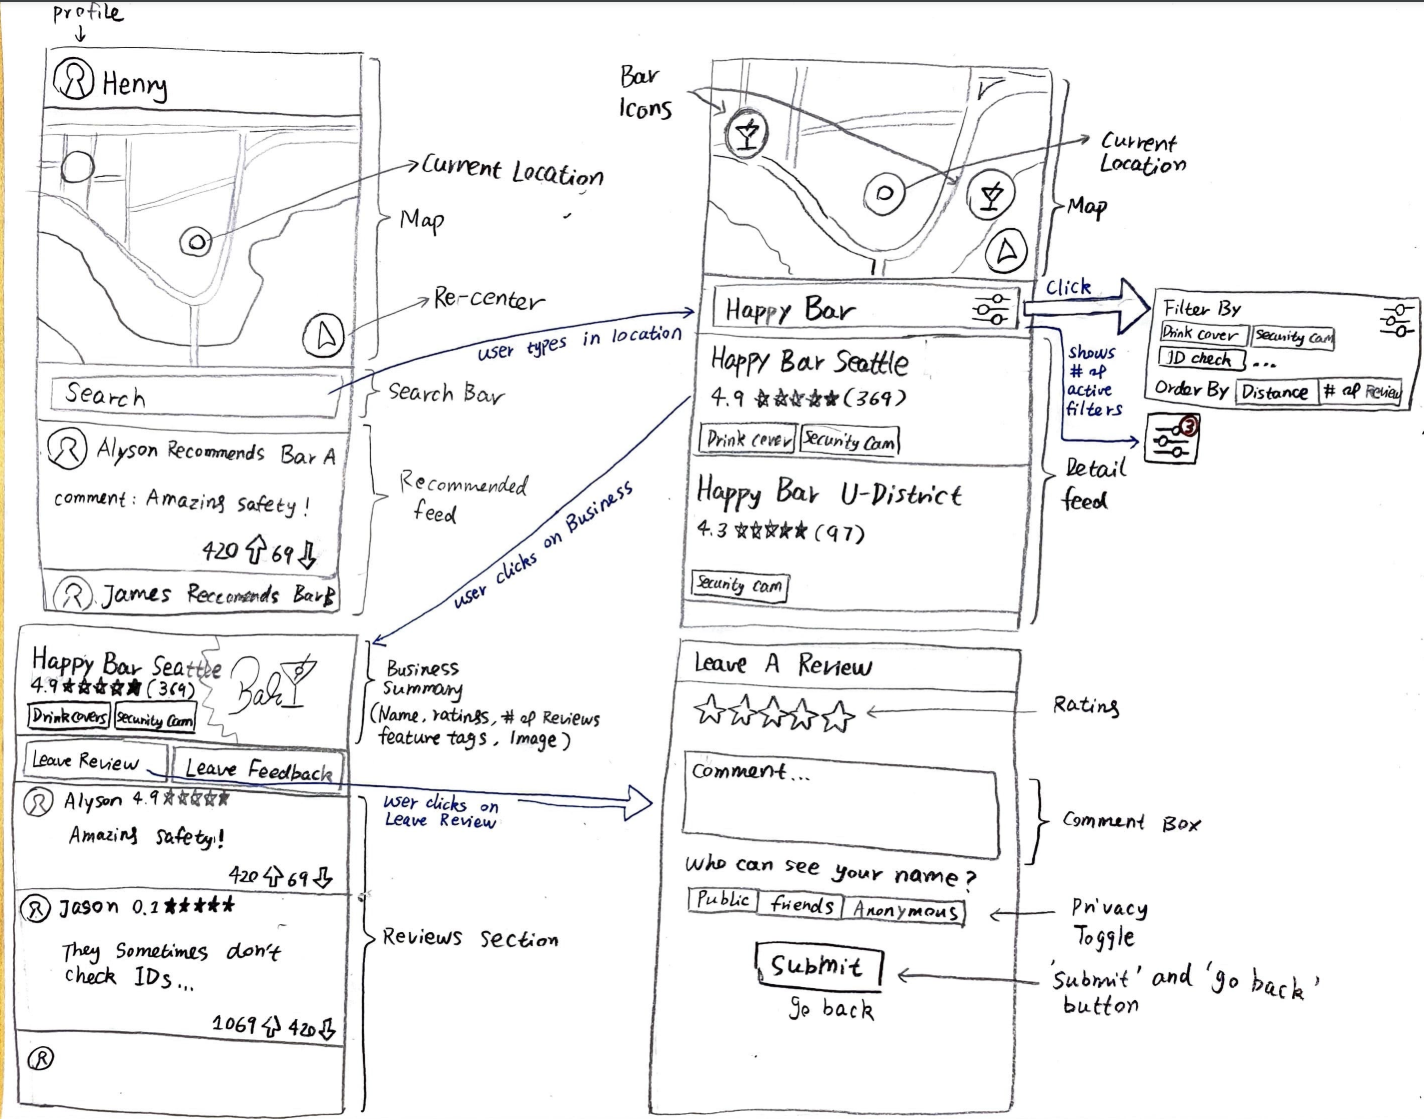 profile
Henry
Current Location
Map
Re-center
user types in location
Search
Search Bar
Alyson Recommends Bar A
comment: Amazing safety!
420 69
Recommended
feed
James Reccomends Bar B
Bar
Icons
Current
Location
Map
Happy Bar
Click
Filter By
Drink cover
Security Cam
ID check ...
Order By Distance # of Review
shows
# of
active
filters
3
Happy Bar Seattle
4.9 ★★★★★ (369)
Drink cover Security Cam
Happy Bar U-District
4.3 ★★★★★ (97)
Security Cam
Detail
feed
user clicks on Business
Happy Bar Seattle
4.9 ★★★★★ (369)
Drink covers Security Cam
Bar
Business
Summary
(Name, ratings, # of Reviews
feature tags, Image)
Leave Review
Leave Feedback
user clicks on
Leave Review
Alyson 4.9 ★★★★★
Amazing safety!
420 69
Jason 0.1 ★★★★★
They sometimes don't
check IDs...
1069 420
Reviews section
Leave A Review
☆☆☆☆☆
Rating
comment...
Comment Box
who can see your name?
Public friends Anonymous
Privacy
Toggle
Submit
go back
'submit' and 'go back'
button